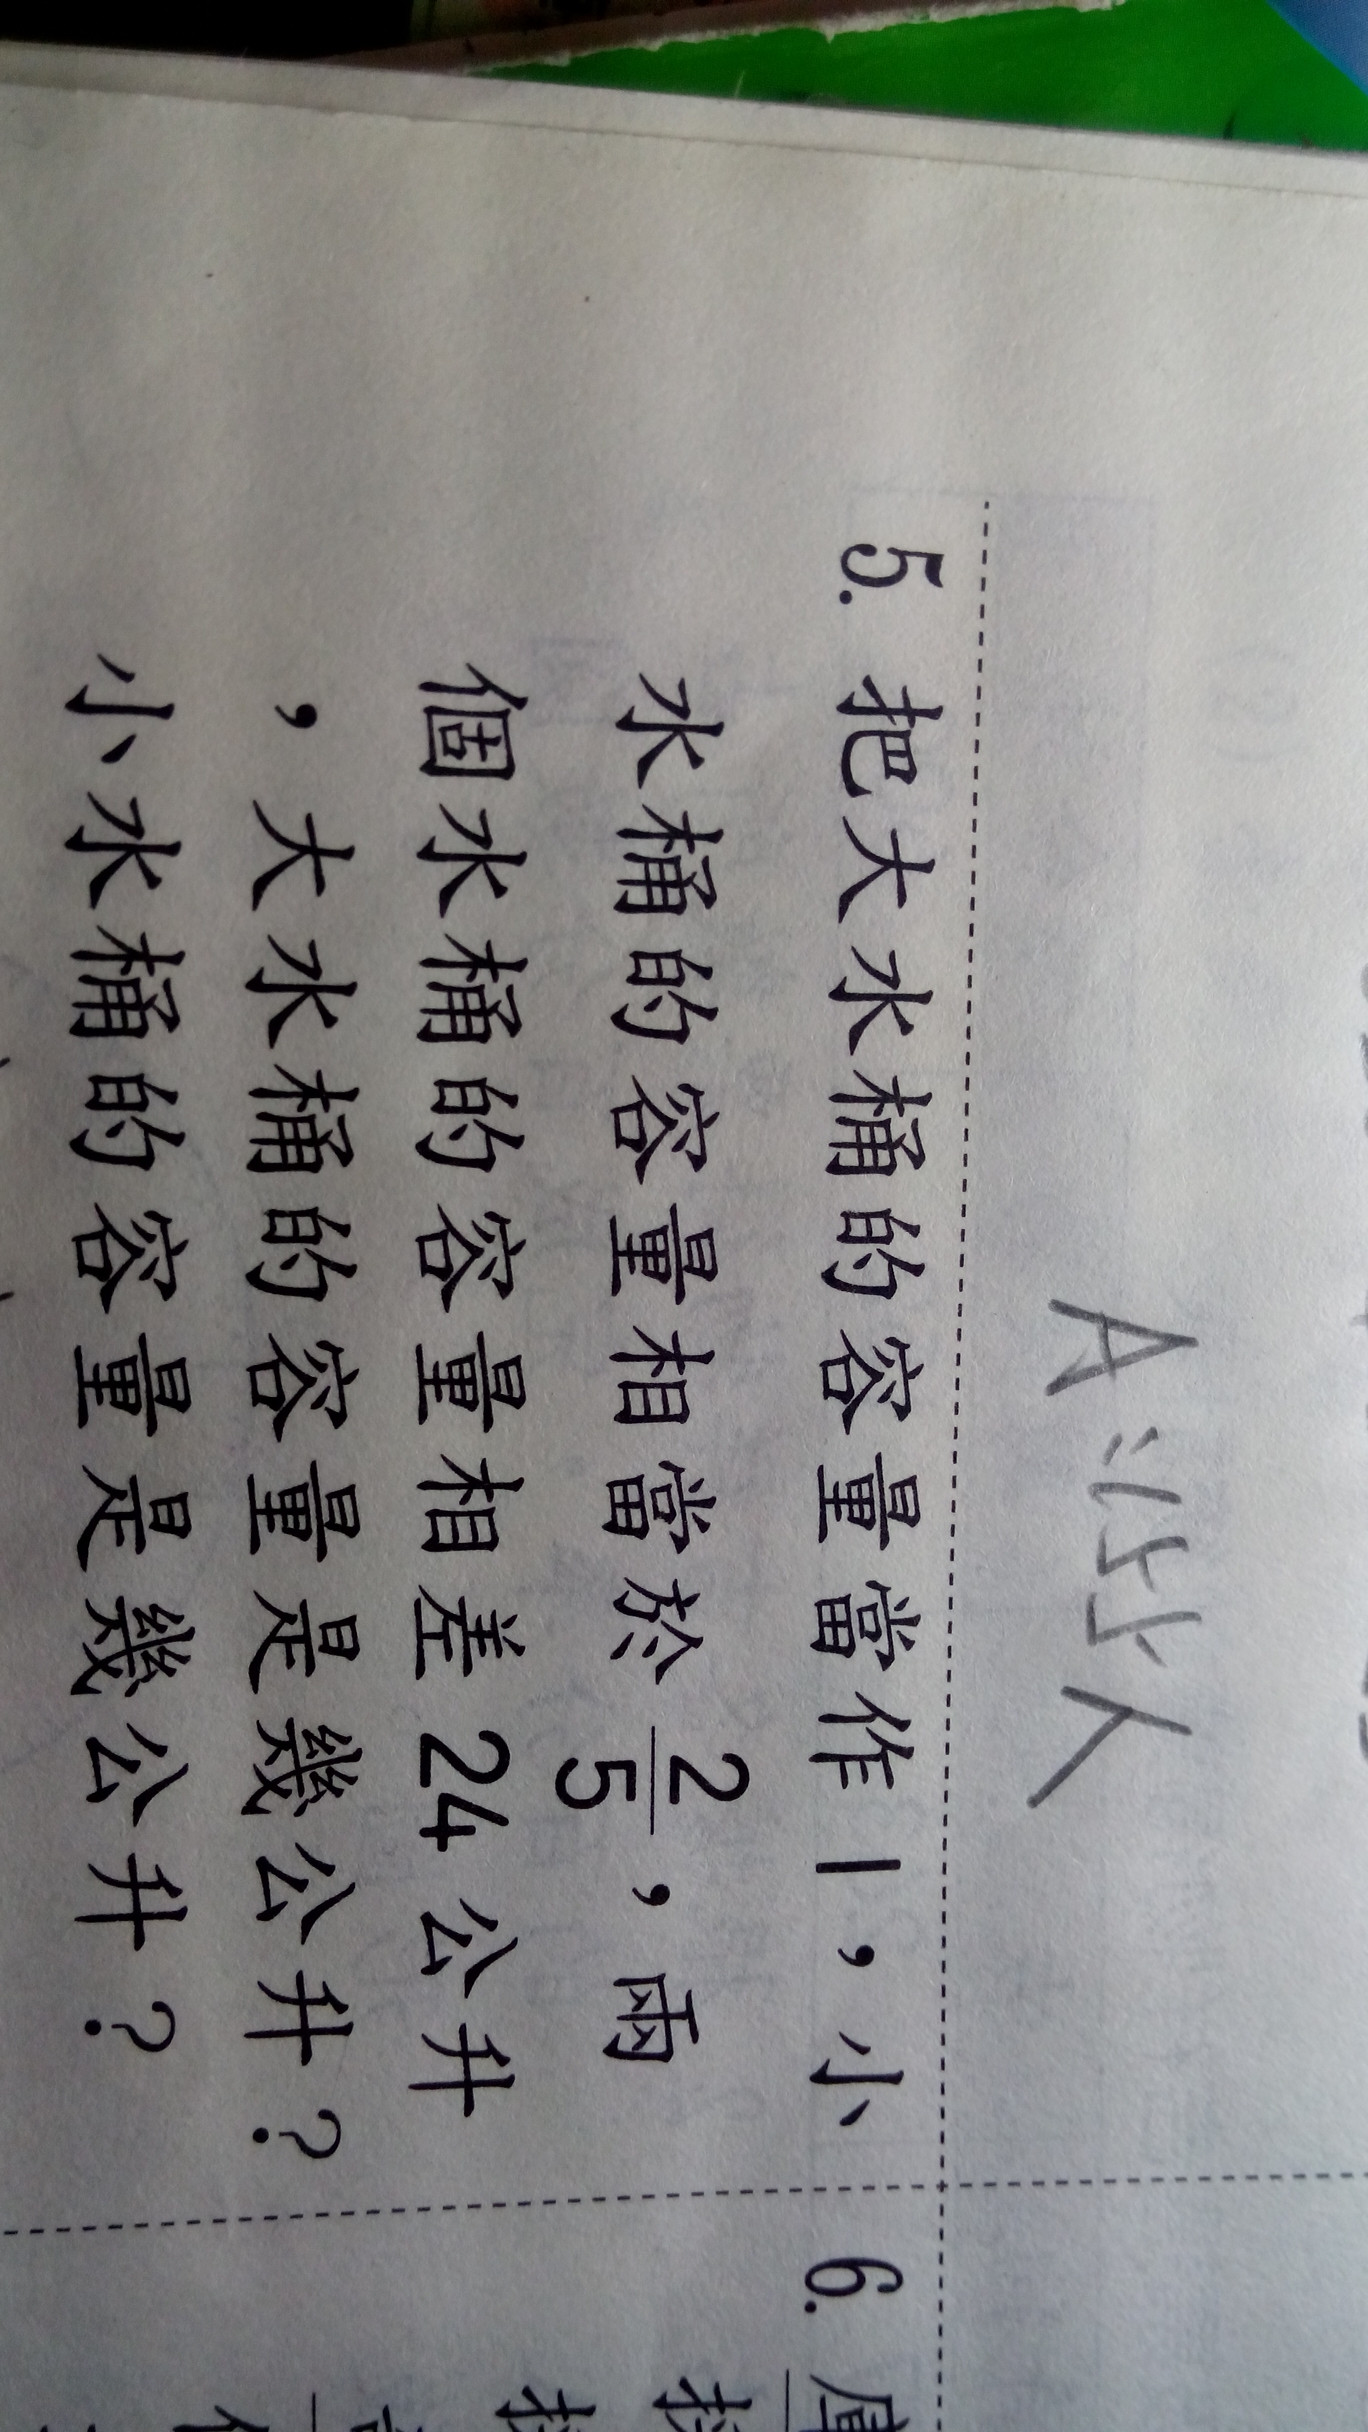 A:144人
5. 把大水桶的容量當作1,小
水桶的容量相當於 2/5,兩
個水桶的容量相差 24 公升
,大水桶的容量是幾公升?
小水桶的容量是幾公升?
6.